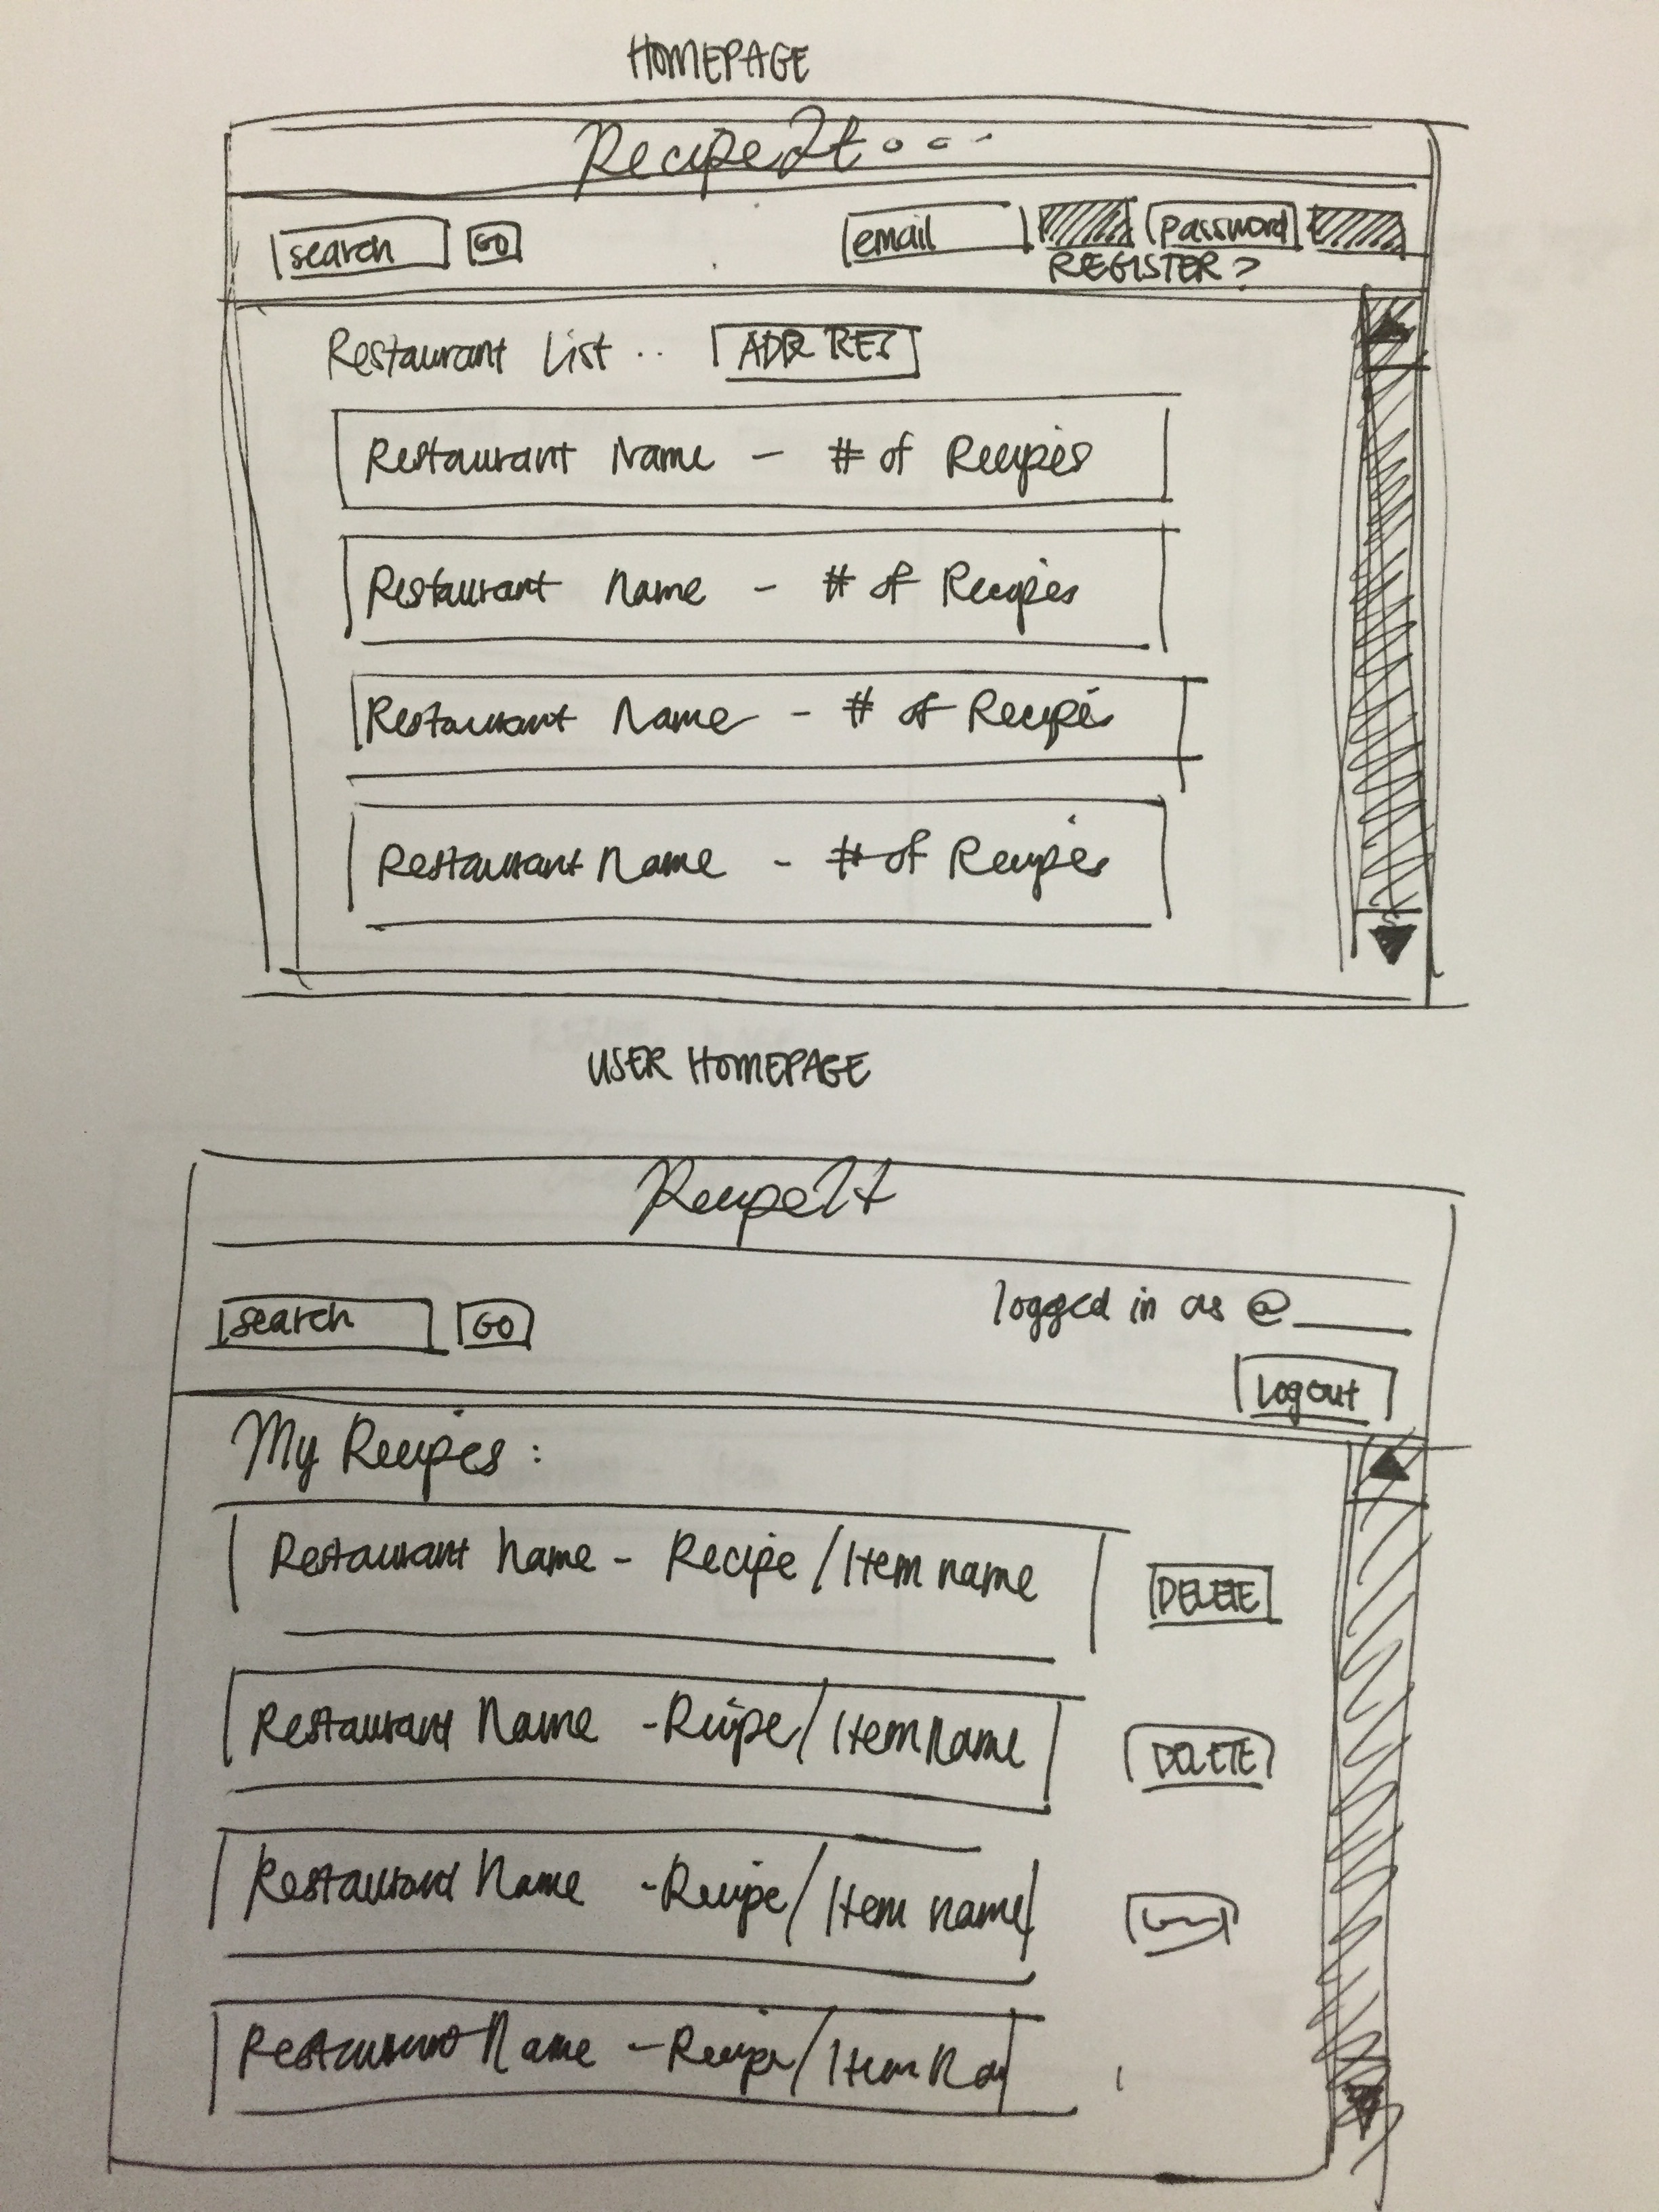 HOMEPAGE
RecipeIt...
search GO email password
REGISTER?
Restaurant List .. ADD RES
Restaurant Name - # of Recipes
Restaurant Name - # of Recipes
Restaurant Name - # of Recipe
Restaurant Name - # of Recipes
USER HOMEPAGE
RecipeIt
search GO logged in as @____
logout
My Recipes:
Restaurant Name - Recipe/Item name DELETE
Restaurant Name - Recipe/Item name DELETE
Restaurant Name - Recipe/Item name
Restaurant Name - Recipe/Item Na